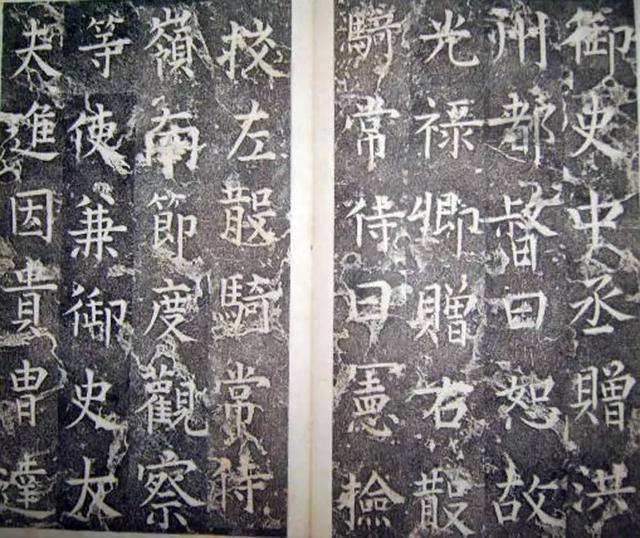 御史中丞贈洪
州都督曰恕故
光禄卿贈右散
騎常侍曰憲撿
挍左散騎常侍
嶺南節度觀察
等使兼御史大
夫進因貴胄達